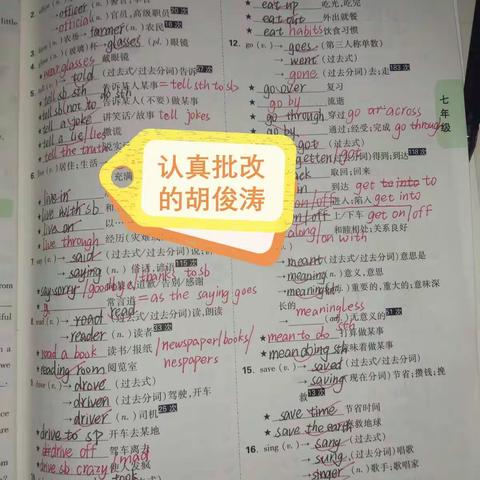 → officer (n.)
→ official (n.) 官员,高级职员
→ farmer (n.) 农民
→ glasses (pl.) 眼镜
★ wear glasses 戴眼镜
→ told (过去式/过去分词)告诉
★ tell sb sth = tell sth to sb
★ tell sb not to do sth 告诉某人(不要)做某事
★ tell a joke 讲笑话/故事 tell jokes
★ tell a lie / lies 撒谎
★ tell the truth
live (v.)居住;生活
★ live in
★ live with sb
★ live on
★ live through 经历(灾难
7. say (v.) → said
→ saying (n.) 俗话,谚语
★ say sorry / goodbye / thanks to sb 道歉/告别/感谢
常言道 = as the saying goes
8. read (v.) → read read (过去式/过去分词)读,朗读
→ reader (n.) 读者
★ read a book 读书/报纸 / newspaper/books/
nespapers
★ reading room 阅览室
→ drove (过去式)
→ driven (过去分词) 驾驶,开车
→ driver (n.) 司机
★ drive to sp 开车去某地
★ drive off 驾车离去
★ drive sb crazy / mad 使人发疯
took
★ eat up 吃光,吃完
★ eat out 外出就餐
★ eat habits 饮食习惯
12. go (v.) → goes (第三人称单数)
→ went (过去式)
→ gone (过去分词)去;走
★ go over 复习
★ go by 流逝
★ go through 穿过 go across
★ go by 通过;经受;完成 go through
got (过去式)
gotten / got (过去分词)得到;到达
back 取回;回来
到达 get to
进入;陷入 get into
on/off 上/下车 get on/off
along / on with 和睦相处;关系好
→ meant (过去式/过去分词) 意思是
→ meaning (n.) 意义,意思
→ meaningful (adj.) 重要的,重大的;意味深长的
→ meaningless (adj.) 无意义的
★ mean to do sth 打算做某事
★ mean doing sth 意味着做某事
15. save (v.) → saved (过去式/过去分词)
→ saving (现在分词) 节省;攒钱;挽救
★ save time 节省时间
★ save the earth 拯救地球
16. sing (v.) → sang (过去式)
→ sung (过去分词)唱歌
→ singer (n.) 歌手;歌唱家
七年级
充满
认真批改
的胡俊涛